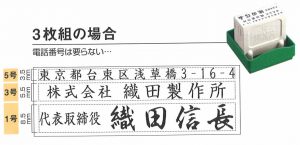 3枚組の場合
電話番号は要らない…
5号 3.5mm 東京都台東区浅草橋3-16-4
3号 5.5mm 株式会社 織田製作所
1号 8.5mm 代表取締役 織田信長